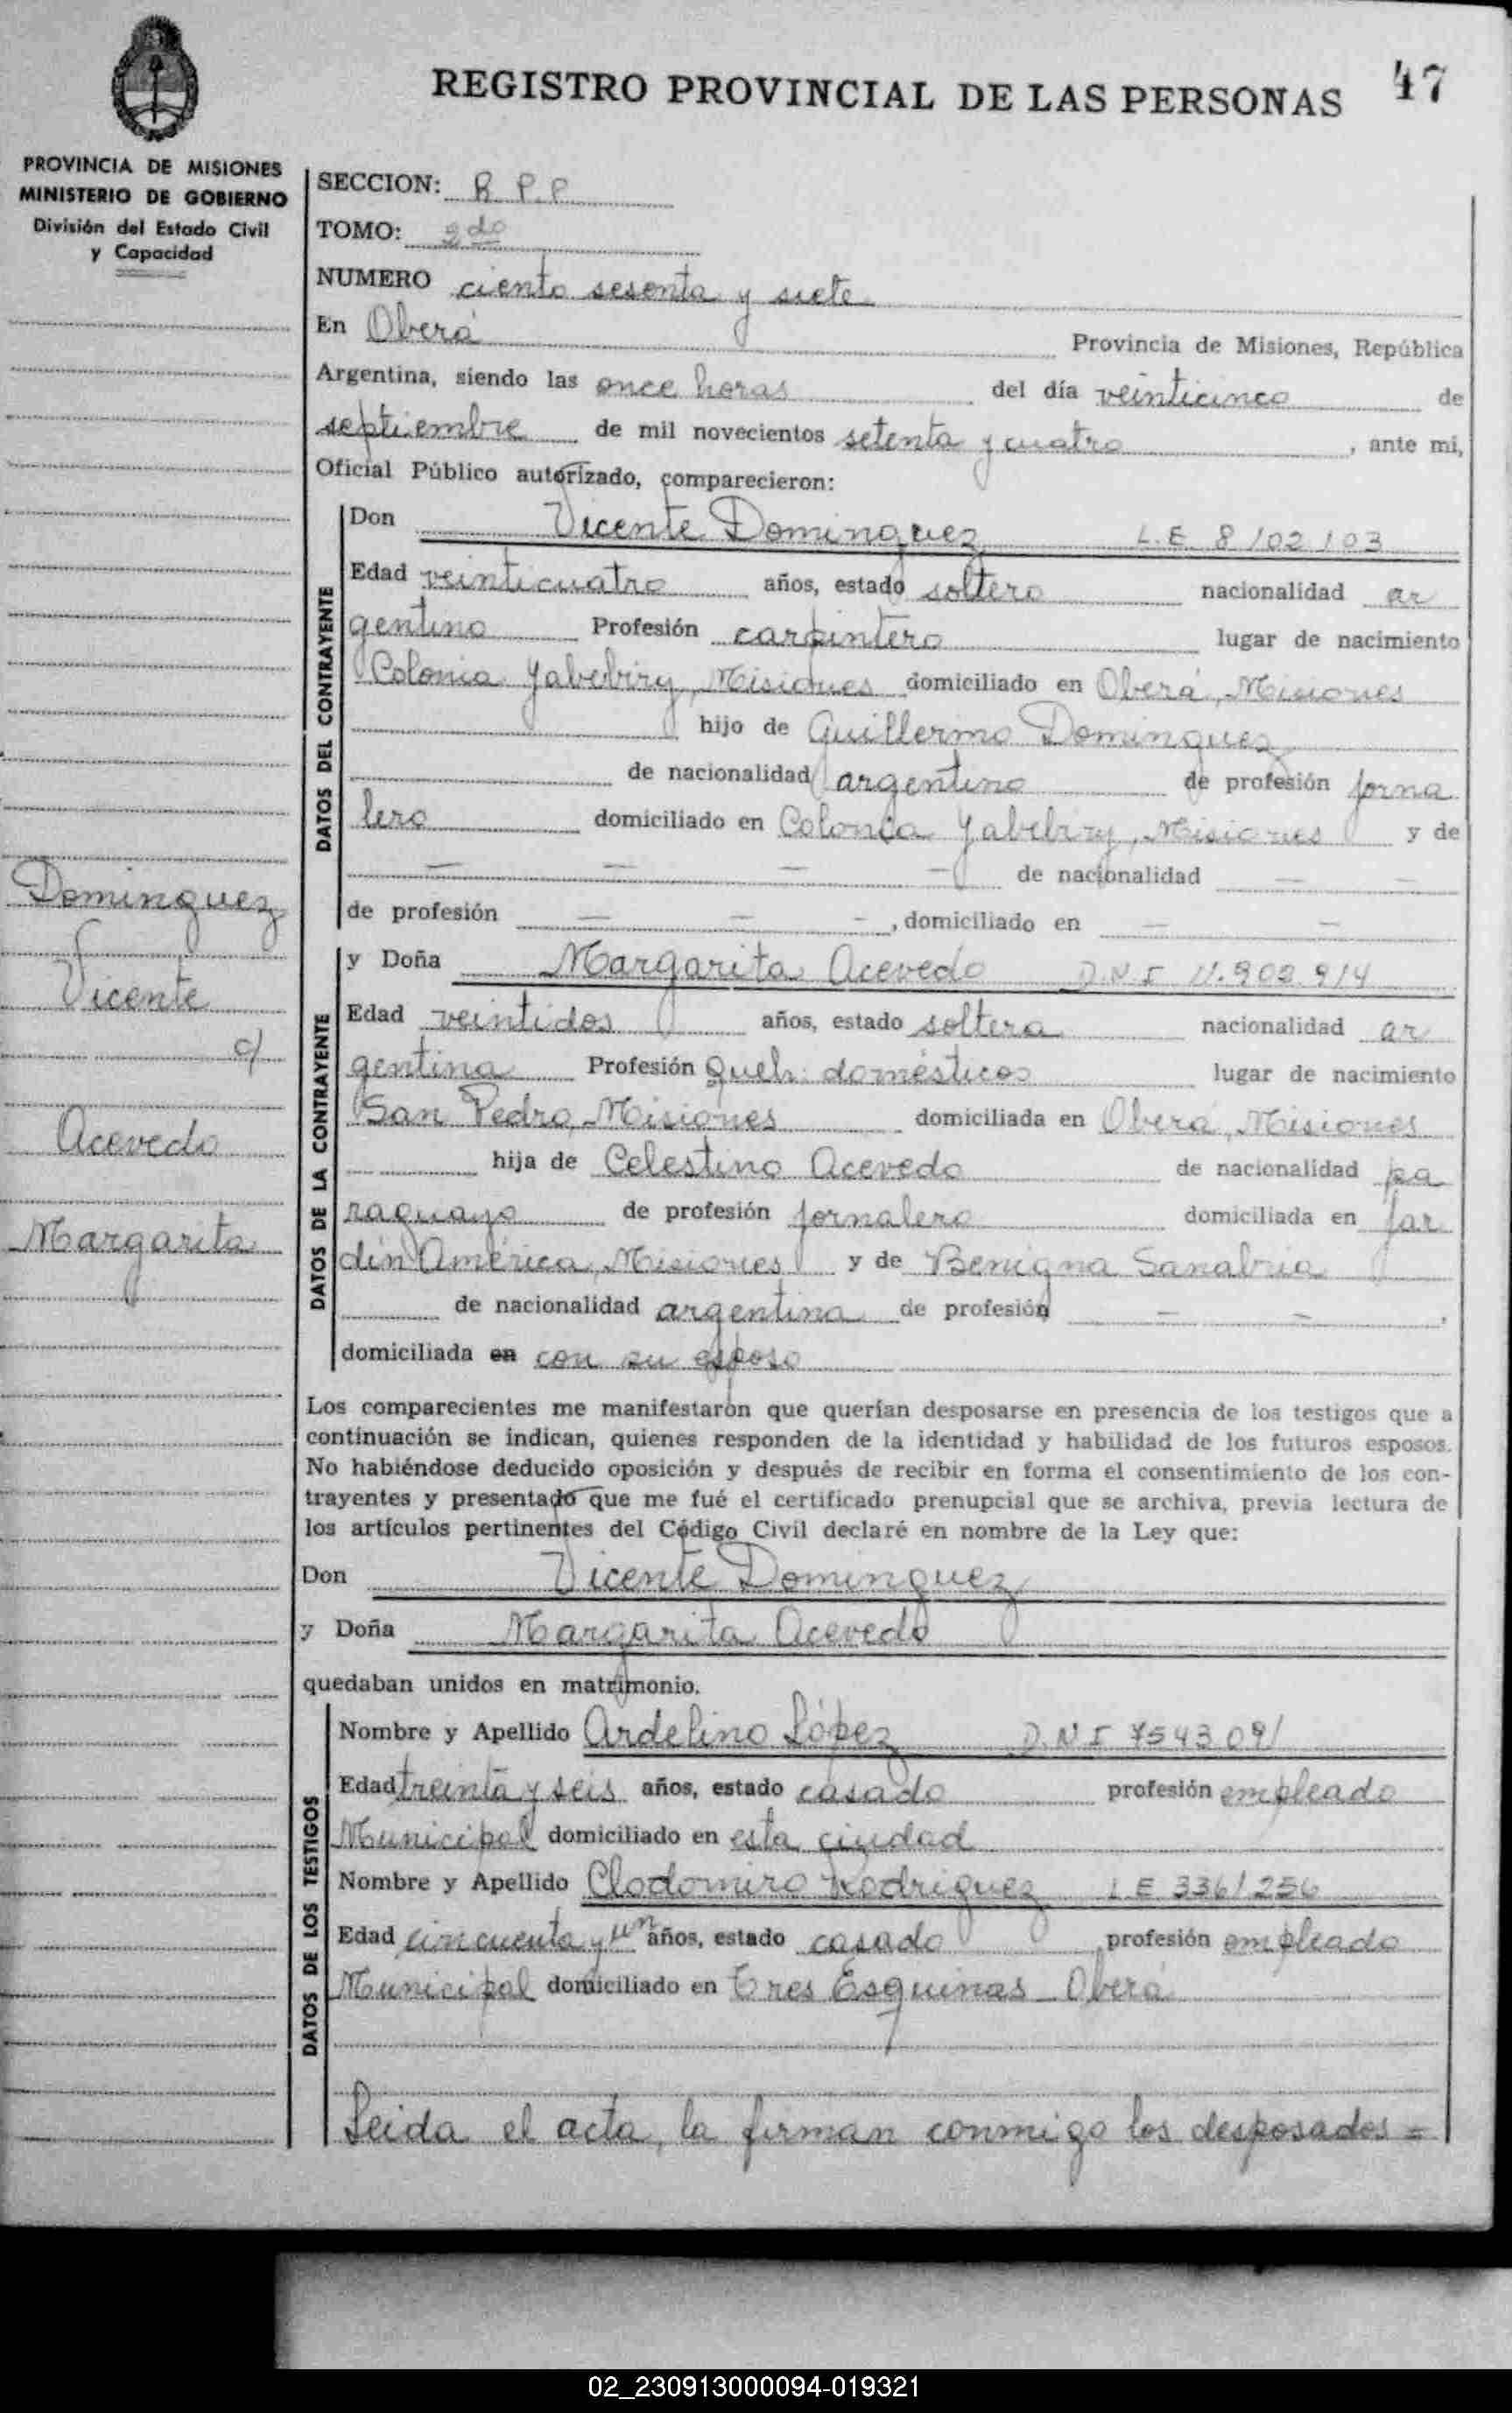 REGISTRO PROVINCIAL DE LAS PERSONAS 47
PROVINCIA DE MISIONES
MINISTERIO DE GOBIERNO
División del Estado Civil
y Capacidad
Dominguez
Vicente
c/
Acevedo
Margarita
SECCION: R P.P.
TOMO: 2do
NUMERO ciento sesenta y siete
En Oberá Provincia de Misiones, República
Argentina, siendo las once horas del día veinticinco de
septiembre de mil novecientos setenta y cuatro, ante mi,
Oficial Público autorizado, comparecieron:
DATOS DEL CONTRAYENTE
Don Vicente Dominguez L.E 8102103
Edad veinticuatro años, estado soltero nacionalidad ar
gentino Profesión carpintero lugar de nacimiento
Colonia Yabebiry, Misiones domiciliado en Oberá, Misiones
hijo de Guillermo Dominguez
de nacionalidad argentino de profesión jorna
lero domiciliado en Colonia Yabebiry, Misiones y de
— — — — de nacionalidad — —
de profesión — — —, domiciliado en — —
DATOS DE LA CONTRAYENTE
y Doña Margarita Acevedo D.N.I 11.902.914
Edad veintidos años, estado soltera nacionalidad ar
gentina Profesión Queh. domésticos lugar de nacimiento
San Pedro, Misiones domiciliada en Oberá, Misiones
hija de Celestino Acevedo de nacionalidad pa
raguayo de profesión jornalero domiciliada en Jar
dín América, Misiones y de Benigna Sanabria
de nacionalidad argentina de profesión — —,
domiciliada en con su esposo
Los comparecientes me manifestaron que querían desposarse en presencia de los testigos que a
continuación se indican, quienes responden de la identidad y habilidad de los futuros esposos.
No habiéndose deducido oposición y después de recibir en forma el consentimiento de los con-
trayentes y presentado que me fué el certificado prenupcial que se archiva, previa lectura de
los artículos pertinentes del Código Civil declaré en nombre de la Ley que:
Don Vicente Dominguez
y Doña Margarita Acevedo
quedaban unidos en matrimonio.
DATOS DE LOS TESTIGOS
Nombre y Apellido Ardelino López D.N.I 7543091
Edad treinta y seis años, estado casado profesión empleado
Municipal domiciliado en esta ciudad
Nombre y Apellido Clodomiro Rodriguez L E 3361256
Edad cincuenta y un años, estado casado, profesión empleado
Municipal domiciliado en Tres Esquinas Oberá
Leida el acta, la firman conmigo los desposados =
02_230913000094-019321